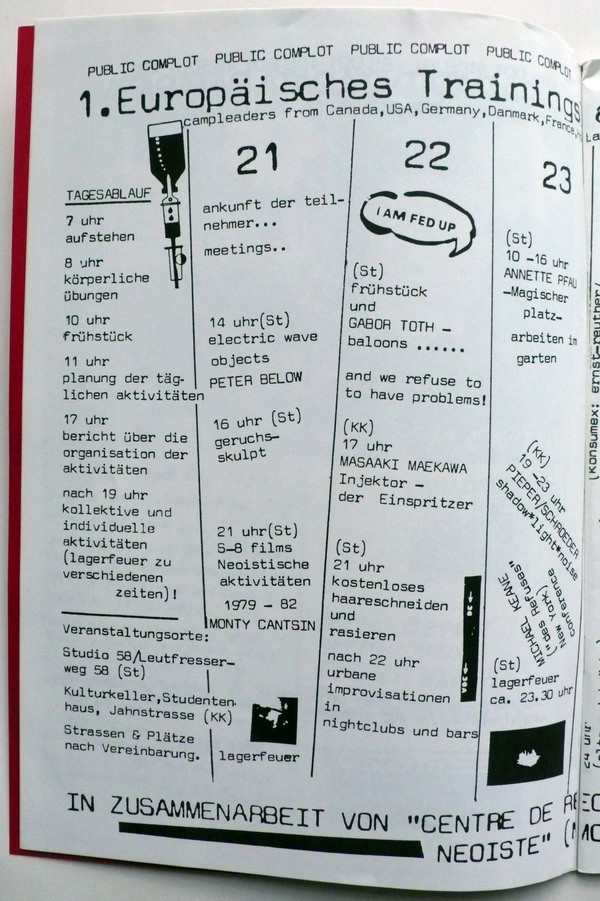 PUBLIC COMPLOT PUBLIC COMPLOT PUBLIC COMPLOT PUBLIC COMPLOT
1.Europäisches Trainings
campleaders from Canada,USA,Germany,Danmark,France,
TAGESABLAUF
7 uhr
aufstehen
8 uhr
körperliche
übungen
10 uhr
frühstück
11 uhr
planung der täg-
lichen aktivitäten
17 uhr
bericht über die
organisation der
aktivitäten
nach 19 uhr
kollektive und
individuelle
aktivitäten
(lagerfeuer zu
verschiedenen
zeiten)!
Veranstaltungsorte:
Studio 58/Leutfresser-
weg 58 (St)
Kulturkeller,Studenten
haus, Jahnstrasse (KK)
Strassen & Plätze
nach Vereinbarung.
21
ankunft der teil-
nehmer...
meetings..
14 uhr(St)
electric wave
objects
PETER BELOW
16 uhr (St)
geruchs-
skulpt
21 uhr(St)
S-8 films
Neoistische
aktivitäten
1979 - 82
MONTY CANTSIN
lagerfeuer
22
I AM FED UP
(St)
frühstück
und
GABOR TOTH -
baloons ......
and we refuse to
to have problems!
(KK)
17 uhr
MASAAKI MAEKAWA
Injektor -
der Einspritzer
(St)
21 uhr
kostenloses
haareschneiden
und
rasieren
nach 22 uhr
urbane
improvisationen
in
nightclubs und bars
38
38A
23
(St)
10 -16 uhr
ANNETTE PFAU
-Magischer
platz-
arbeiten im
garten
(KK)
19 -23 uhr
PIEPER/SCHROEDER
shadow*light*noise
MICHAEL KEANE
("des Refuses"
New York)
Conference
(St)
lagerfeuer
ca. 23.30 uhr
IN ZUSAMMENARBEIT VON "CENTRE DE RE
NEOISTE" (